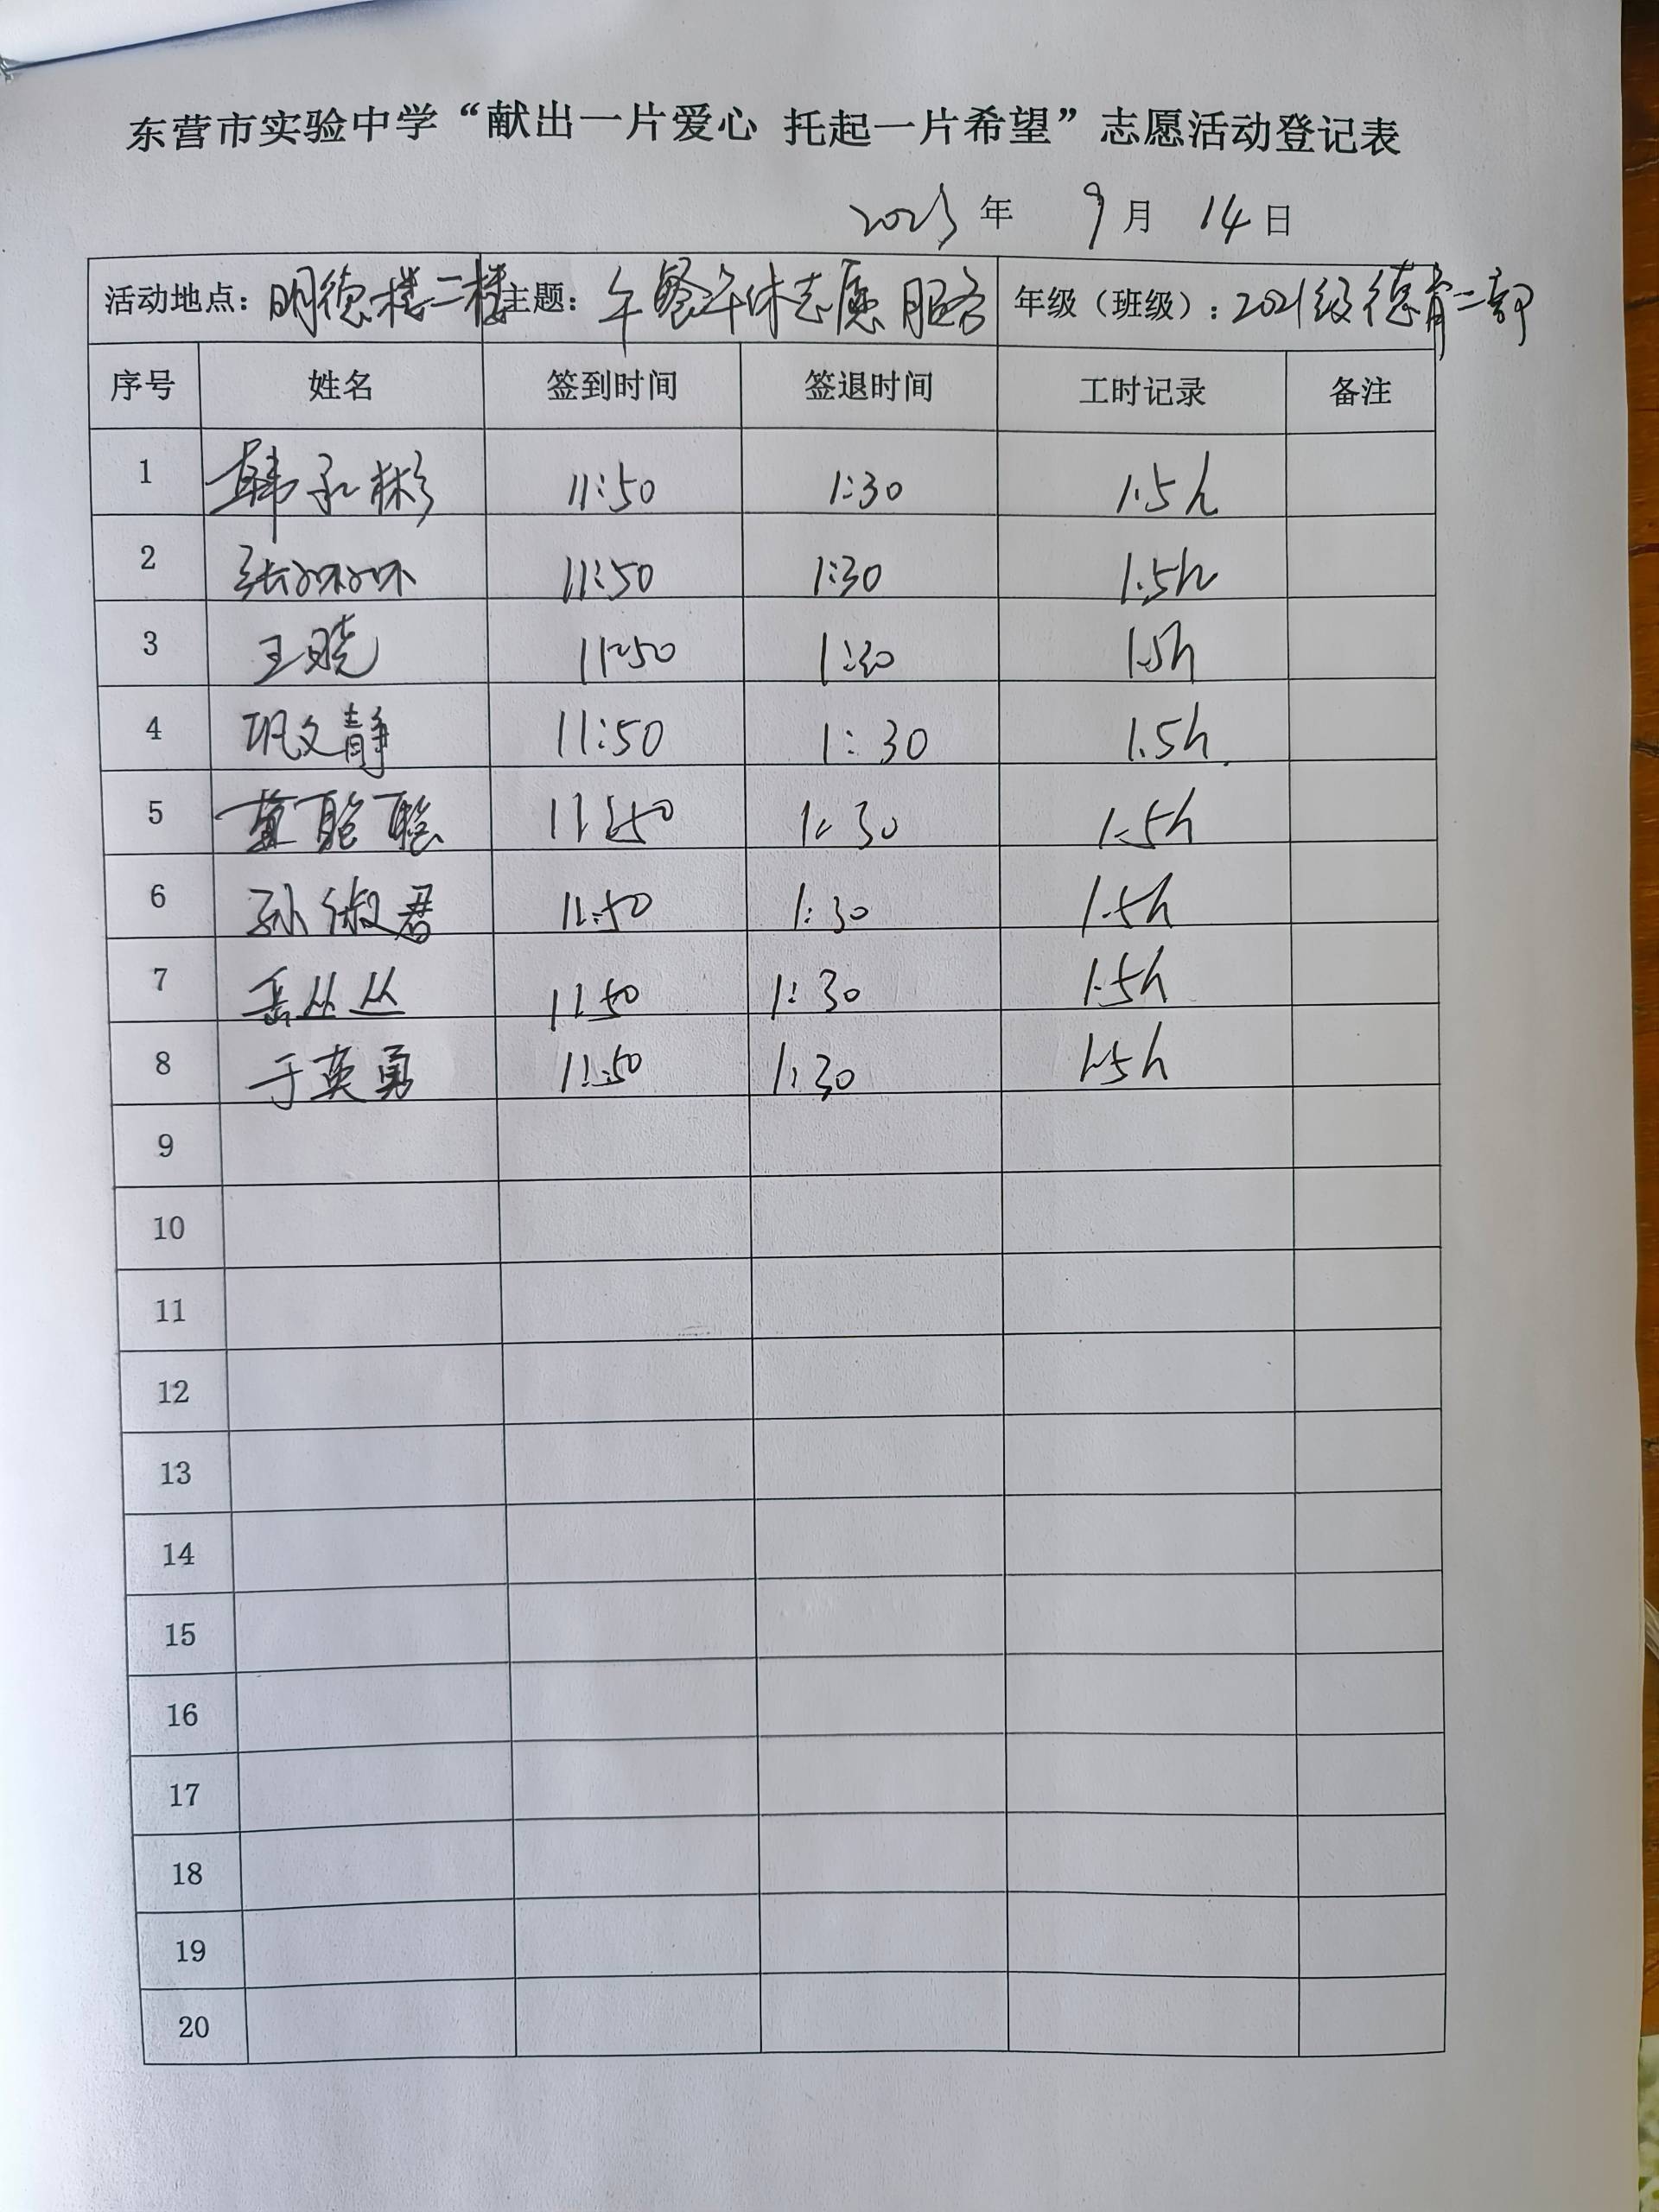 东营市实验中学“献出一片爱心 托起一片希望”志愿活动登记表
2023年 9月 14日
活动地点：明德楼二楼 主题：午餐午休志愿服务 年级（班级）：2021级德育二部
序号 姓名 签到时间 签退时间 工时记录 备注
1 韩承彬 11:50 1:30 1.5h
2 张环环 11:50 1:30 1.5h
3 王晓 11:50 1:30 1.5h
4 巩文静 11:50 1:30 1.5h
5 董聪聪 11:50 1:30 1.5h
6 孙淑君 11:50 1:30 1.5h
7 岳丛丛 11:50 1:30 1.5h
8 于英勇 11:50 1:30 1.5h
9
10
11
12
13
14
15
16
17
18
19
20